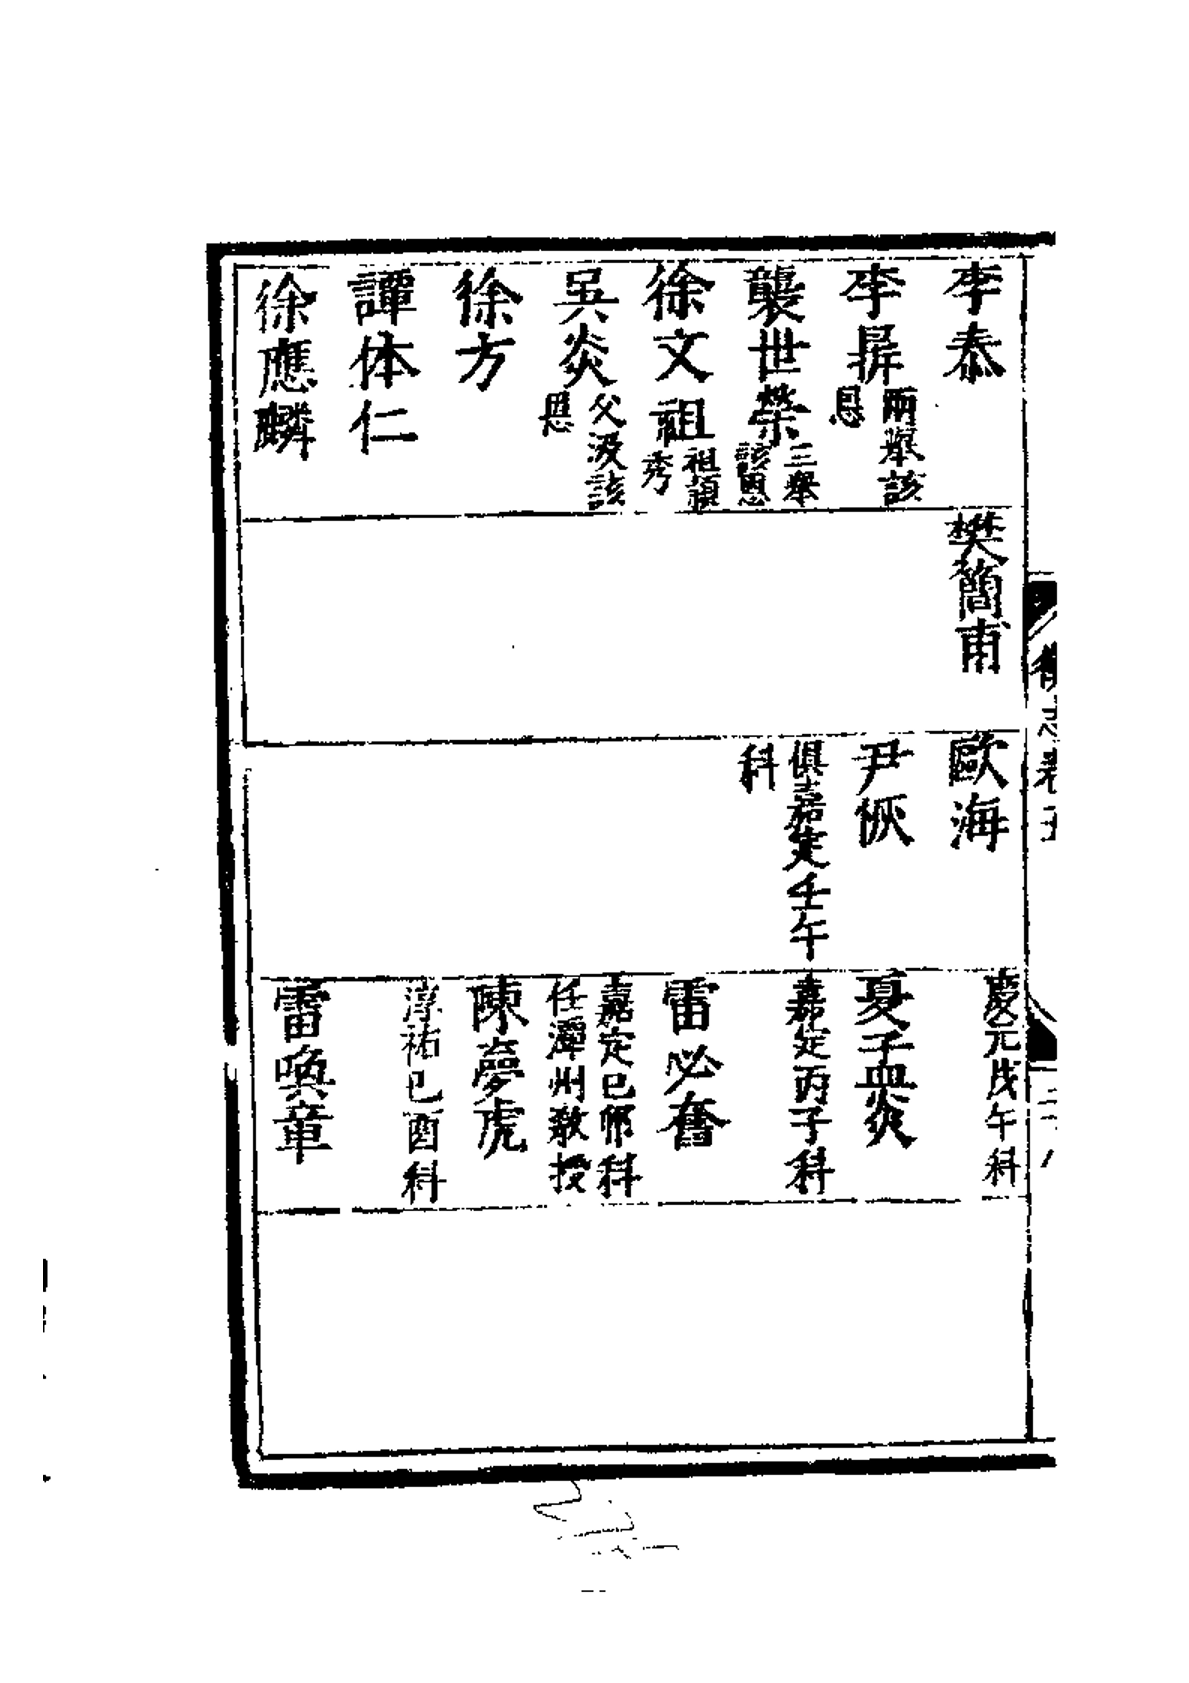 李泰
李㨒兩舉該
恩
龔世榮三舉
該恩
徐文祖祖頴
秀
吳炎父汲該
恩
徐方
譚体仁
徐應麟
樊簡甫
歐海
尹恢
俱嘉定壬午
科
慶元戊午科
夏孟炎
嘉定丙子科
雷必奮
嘉定己卯科
任潭州教授
陳夢虎
淳祐己酉科
雷喚章